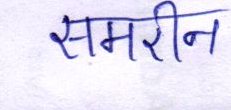 समरीन